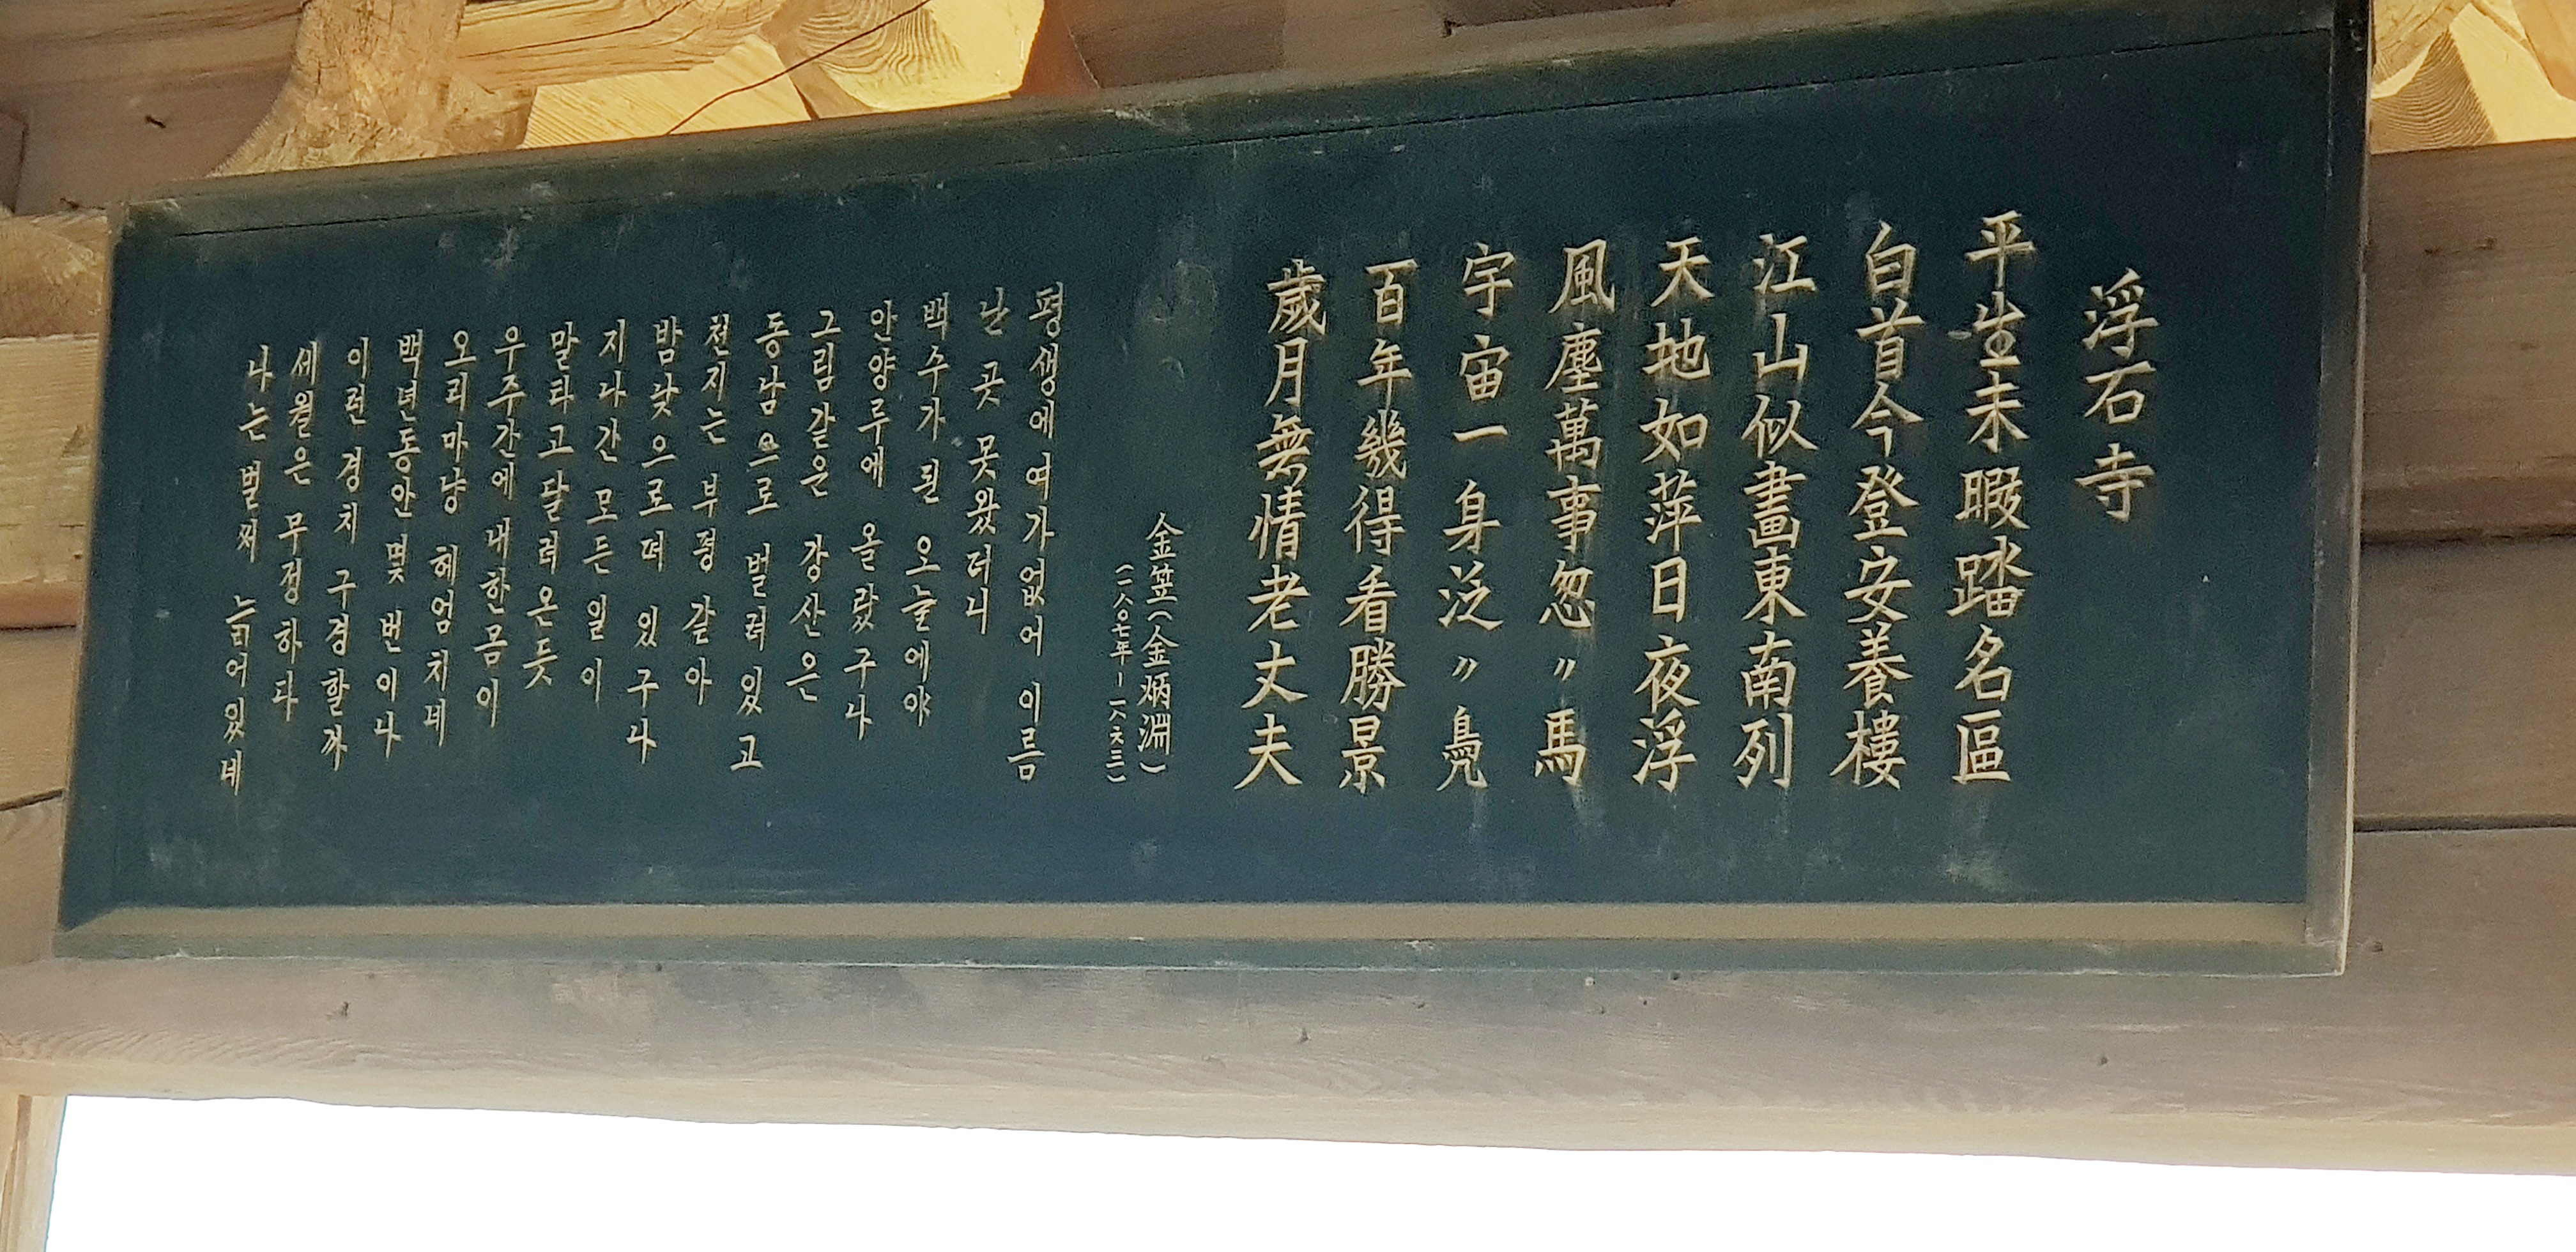 浮石寺
平生未暇踏名區
白首今登安養樓
江山似畫東南列
天地如萍日夜浮
風塵萬事忽〃馬
宇宙一身泛〃鳧
百年幾得看勝景
歲月無情老丈夫
金笠(金炳淵)
(一八〇七年-一八六三)
평생에 여가 없어 이름
난 곳 못왔더니
백수가 된 오늘에야
안양루에 올랐구나
그림같은 강산은
동남으로 벌려있고
천지는 부평 같아
밤낮으로 떠 있구나
지나간 모든 일이
말타고 달려온듯
우주간에 내한몸이
오리마냥 헤엄치네
백년동안 몇 번이나
이런 경치 구경할까
세월은 무정하다
나는 벌써 늙어있네